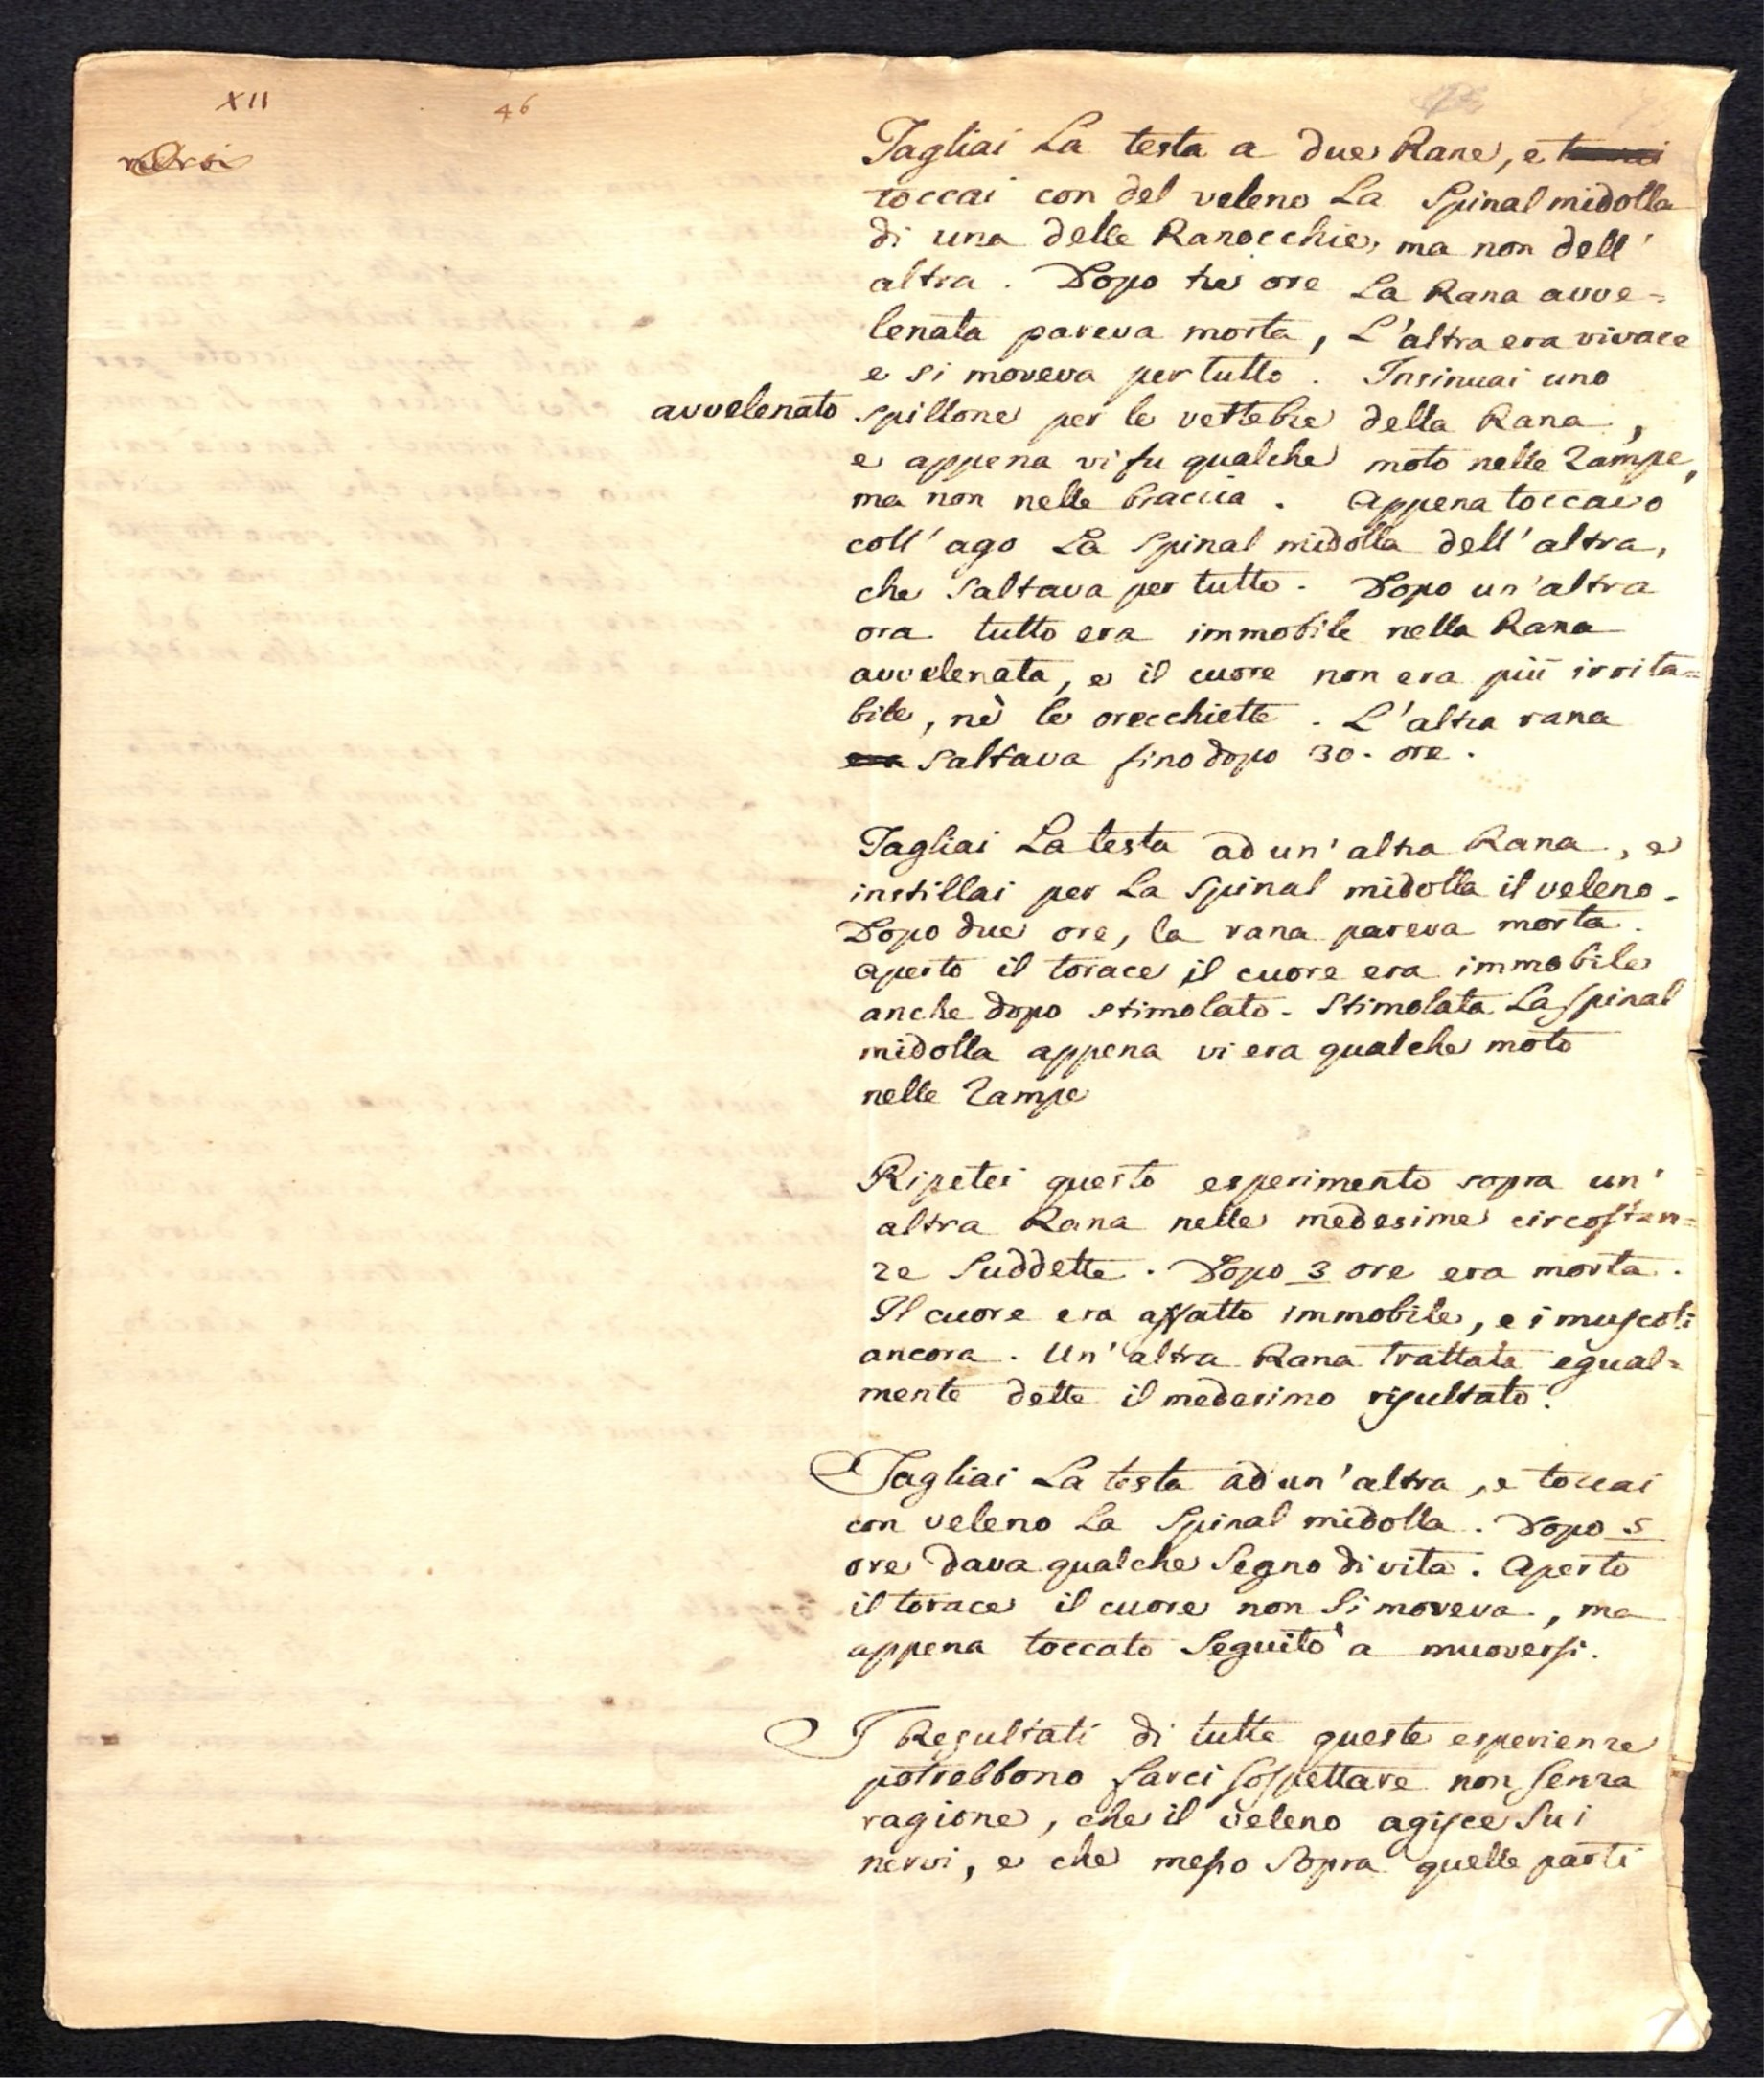 XII
46
Tagliai La testa a due Rane, e
toccai con del veleno La Spinal midolla
di una delle Ranocchie, ma non dell'
altra. Dopo tre ore La Rana avve=
lenata pareva morta, L'altra era vivace
e si moveva per tutto. Insinuai uno
avvelenato spillone per le vertebre della Rana,
e appena vi fu qualche moto nelle Zampe,
ma non nelle braccia. Appena toccavo
coll'ago La Spinal midolla dell'altra,
che Saltava per tutto. Dopo un'altra
ora tutto era immobile nella Rana
avvelenata, e il cuore non era più irrita=
bile, nè le orecchiette. L'altra rana
era Saltava fino dopo 30. ore.
Tagliai La testa ad un'altra Rana, e
instillai per La Spinal midolla il veleno.
Dopo due ore, la rana pareva morta.
Aperto il torace il cuore era immobile
anche dopo stimolato. Stimolata La Spinal
midolla appena vi era qualche moto
nelle Zampe
Ripetei questo esperimento sopra un'
altra Rana nelle medesime circostan=
ze Suddette. Dopo 3 ore era morta.
Il cuore era affatto immobile, e i muscoli
ancora. Un'altra Rana trattata egual=
mente dette il medesimo risultato.
Tagliai La testa ad un'altra, e toccai
con veleno La Spinal midolla. Dopo 5
ore dava qualche Segno di vita. Aperto
il torace il cuore non Si moveva, ma
appena toccato Seguitò a muoversi.
I Resultati di tutte queste esperienze
potrebbono farci sospettare non senza
ragione, che il veleno agisce Su i
nervi, e che messo Sopra quelle parti